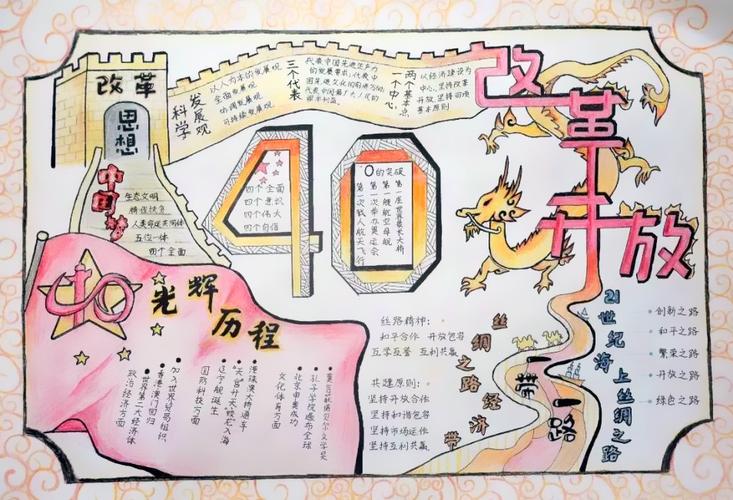 改革
思想
中国梦
生态文明
精准扶贫
人类命运共同体
五位一体
四个全面
科学
发展观
以人为本的发展观
全面发展观
协调发展观
可持续发展观
三个代表
代表中国先进生产力
的发展要求；代表中
国先进文化的前进方向；
代表中国最广大人民的
根本利益。
一个中心
两个基本点
以经济建设为
中心，坚持改革
开放，坚持四项
基本原则
改革开放
40
四个全面
四个意识
四个伟大
四个自信
0的突破
第一座世界最长大桥
第一艘航空母舰
第一次举办奥运会
第一次载人航天飞行
40
光辉历程
政治经济方面
世界第二大经济体
香港澳门回归
加入世界贸易组织
国防科技方面
辽宁舰诞生
"天宫"升天"蛟龙"入海
港珠澳大桥通车
文化体育方面
北京申奥成功
孔子学院遍布全球
莫言获诺贝尔文学奖
丝路精神：
和平合作 开放包容
互学互鉴 互利共赢
共建原则：
坚持开放合作
坚持和谐包容
坚持市场运作
坚持互利共赢
丝绸之路经济带
一带一路
21世纪海上丝绸之路
创新之路
和平之路
繁荣之路
开放之路
绿色之路